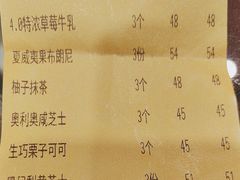 4.0特浓草莓牛乳 3个 48 48
夏威夷果布朗尼 3份 54 54
柚子抹茶 3个 48 48
奥利奥咸芝士 3个 45 45
生巧栗子可可 3个 45 45
3份 51 51